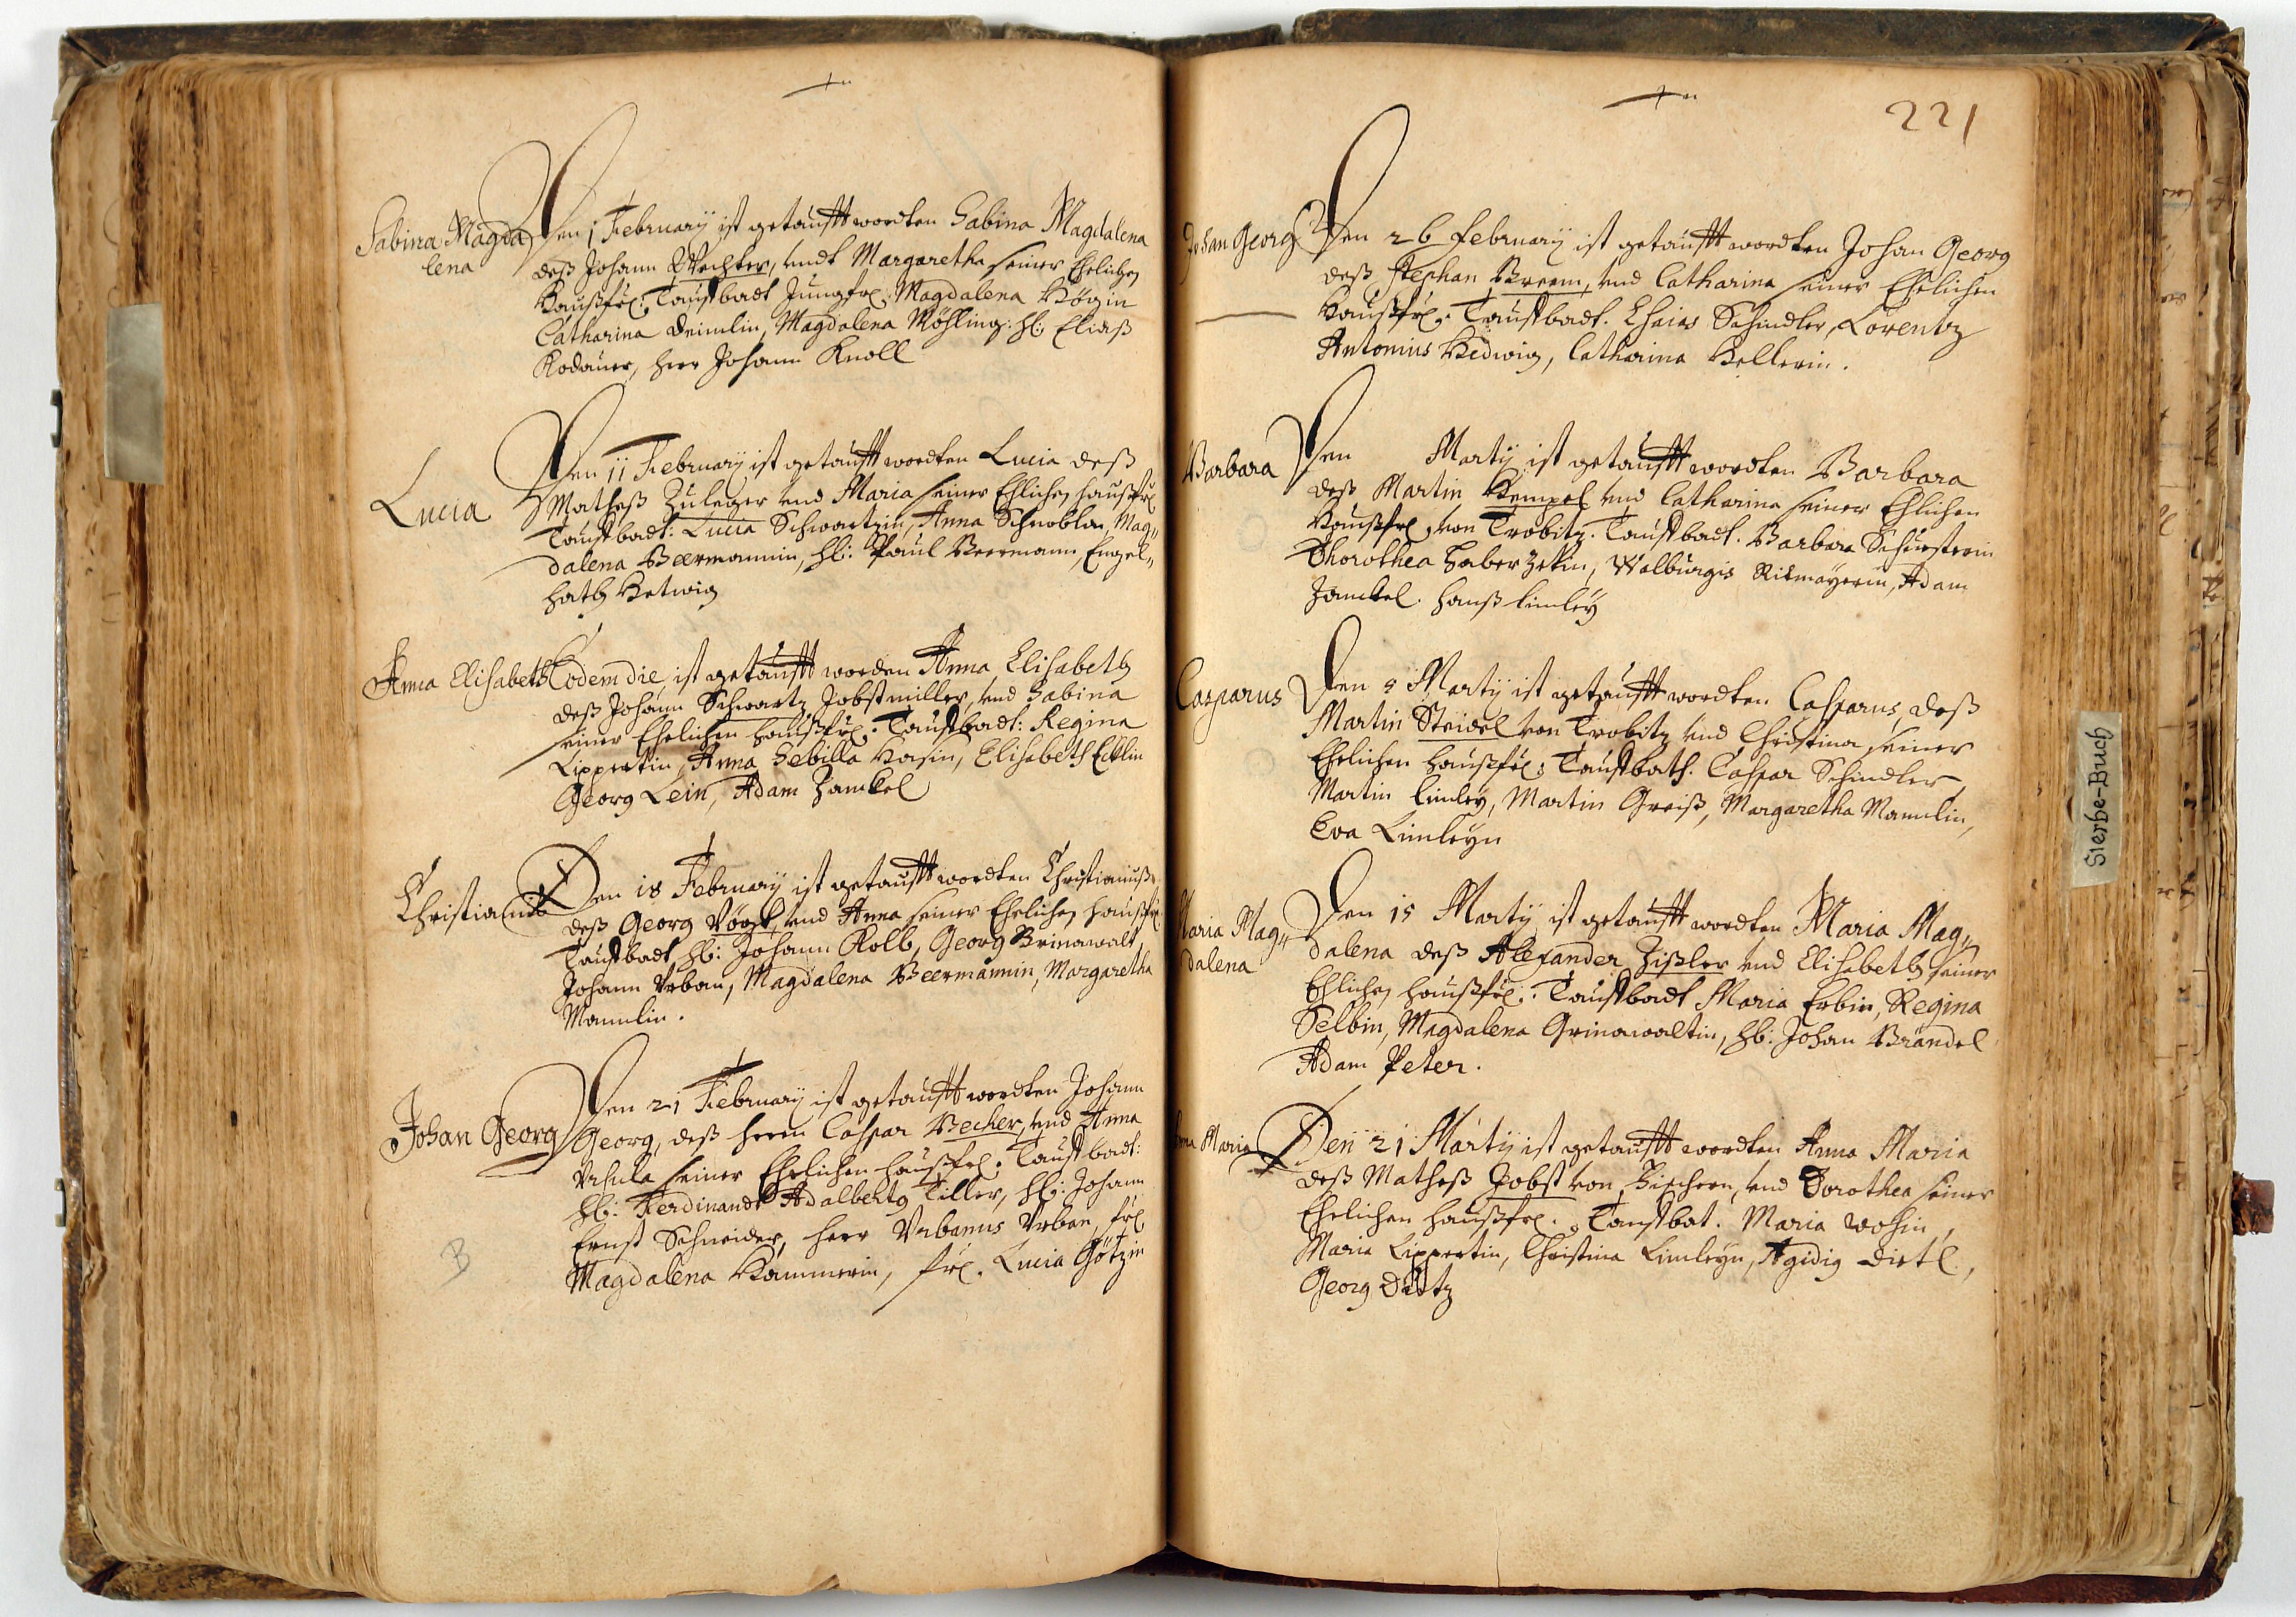 Sabina Magda
lena
Den 1 February ist getaufft wordten Sabina Magdalena
deß Johann Wechter, undt Margaretha seiner Ehelichen
Haußfr: Taufbadt Jungfr: Magdalena Högin
Catharina Deimlin, Magdalena Möhling: H: Eliaß
Rodauer, herr Johann Knoll
Lucia
Den 11 February ist getaufft wordten Lucia deß
Matheß Zuleger und Maria seiner Ehlichen haußfr
Taufbadt: Lucia Schwartzin, Anna Mag„
dalena Beermannin, H: Paul Beermann, Engel„
hath Hetwig
Anna Elisabeth
Eodem die, ist getaufft worden Anna Elisabeth
deß Johann Schwartz Jobstmiller, und Sabina
seiner Ehelichen haußfr: Taufbadt: Regina
Lippertin, Anna Sebilla Hasin, Elisabeth
Georg Lein, Adam Zanckel
Den 18 February ist getaufft wordten Christianuß
deß Georg Vögt, und Anna seiner Ehelichen haußfr
Taufbadt H: Johann Kolb, Georg Grinawalt
Johann Urban, Magdalena Beermännin, Margaretha
Mannlin.
Johan Georg
Den 21 February ist getaufft wordten Johann
Georg, deß herrn Caspar Becher, und Anna
Ursula seiner Ehelichen haußfr: Taufbadt:
H: Ferdinandt Adalberty Tiller, H: Johann
Ernst Schneider, herr Urbanus Urban, fr:
Magdalena Kammerin, fr: Lucia Götzin
B
221
Johan Georg
Den 26 February ist getaufft wordten Johan Georg
deß Stephan und Catharina seiner Ehelichen
Haußfr: Taufbadt. Schindler, Lorentz
Antonius Hedwig, Catharina Kellerin.
Barbara
Den Marty ist getaufft wordten Barbara
deß Martin Kempel und Catharina seiner Ehlichen
Haußfr: von Trobitz. Taufbadt. Barbara Schusterin
Dhorothea Walburgis Rismayerin, Adam
Zanckel. hanß Limley
Casparus
Den 5 Marty ist getaufft wordten Casparus, deß
Martin Steidel von Trobitz und Christina seiner
Ehelichen haußfr: Taufbath. Caspar Schindler,
Martin Limley, Martin Greiß, Margaretha Mannlin,
Eva Limleyn
Maria Mag„
dalena
Den 15 Marty ist getaufft wordten Maria Mag„
dalena deß Alexander Zißler und Elisabeth seiner
Ehlichen haußfr: Taufbadt Maria Erbin, Regina
Selbin, Magdalena Grinawaltin, H: Johan Brändel
Adam Peter.
Anna Maria
Den 21 Marty ist getaufft wordten Anna Maria
deß Matheß Jobst von und Dorothea seiner
Ehelichen haußfr: Taufbat. Maria
Maria Lippertin, Christina Limleyn, Agidig Dietl,
Georg
Sterbe-Buch